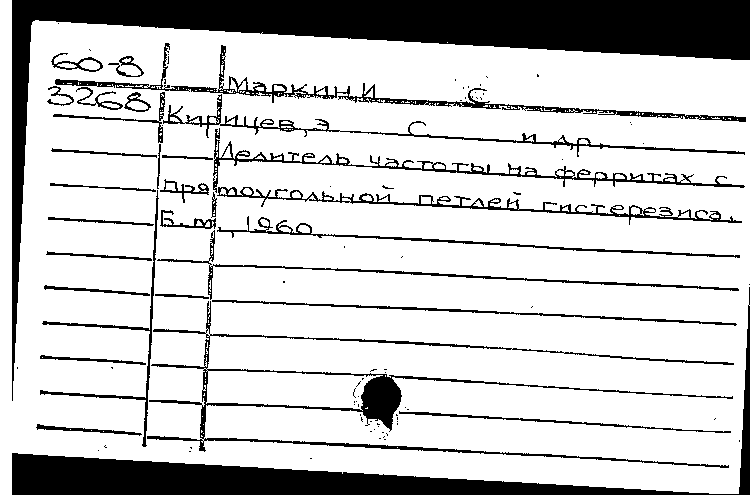 60-8 Маркин, И С
3268 Кирицев, Э С и др.
Делитель частоты на ферритах с
прямоугольной петлей гистерезиса.
Б.м., 1960.